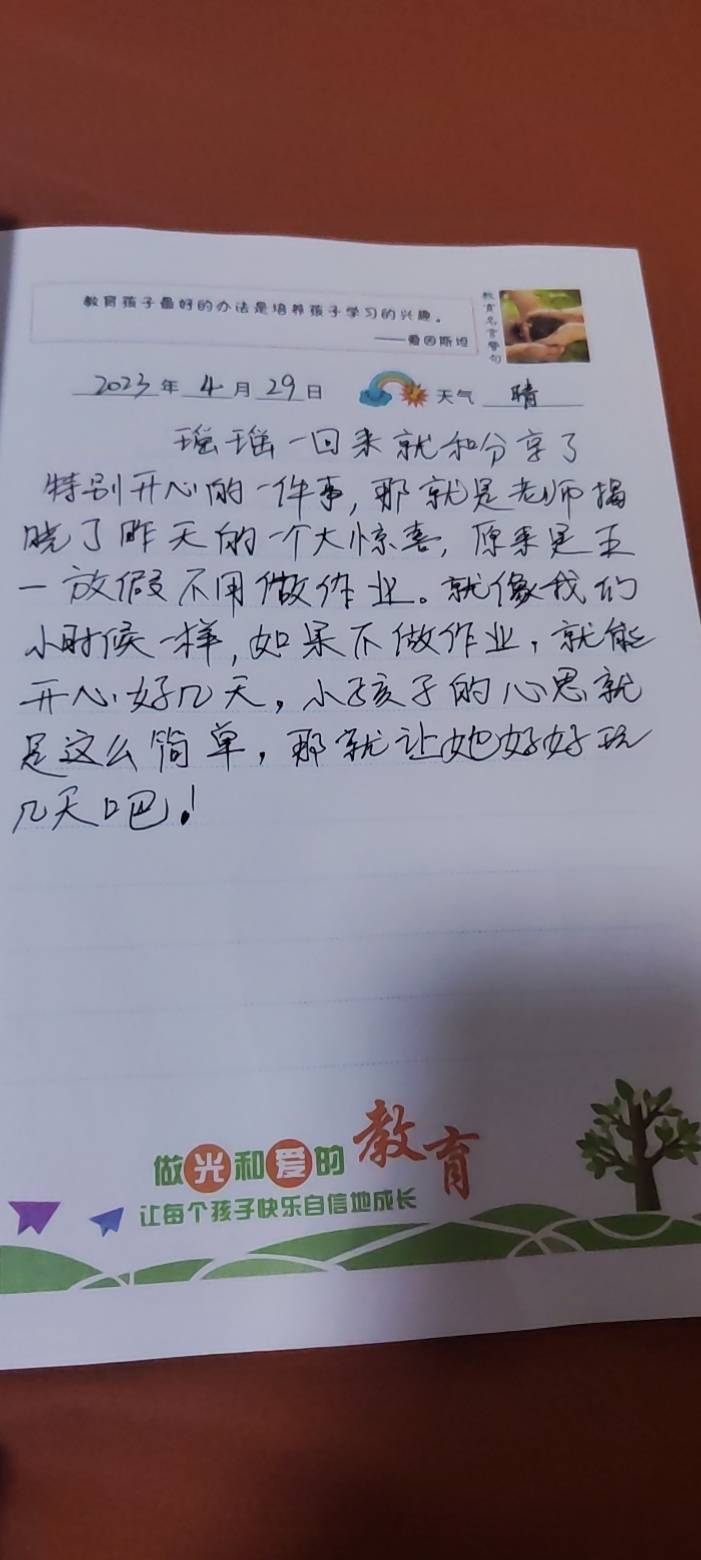 教育孩子最好的办法是培养孩子学习的兴趣。
——爱因斯坦
教育名言警句
2023年 4月 29日 天气 晴
瑶瑶一回来就和分享了
特别开心的一件事,那就是老师揭
晓了昨天的一个大惊喜,原来是五
一放假不用做作业。就像我们
小时候一样,如果不做作业,就能
开心好几天,小孩子的心思就
是这么简单,那就让她好好玩
几天吧!
做光和爱的教育
让每个孩子快乐自信地成长